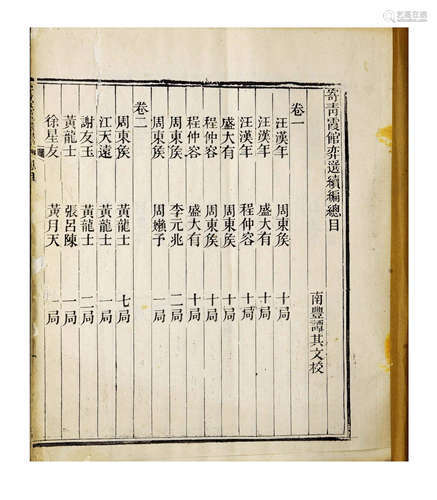 寄青霞館弈選續編總目
南豐譚其文校
卷一
汪漢年 周東侯 十局
汪漢年 盛大有 十局
汪漢年 程仲容 十局
盛大有 周東侯 十局
程仲容 周東侯 十局
程仲容 盛大有 十局
周東侯 李元兆 二局
周東侯 周嬾予 一局
卷二
周東侯 黃龍士 七局
江天遠 黃龍士 一局
謝友玉 黃龍士 二局
黃龍士 張呂陳 一局
徐星友 黃月天 一局